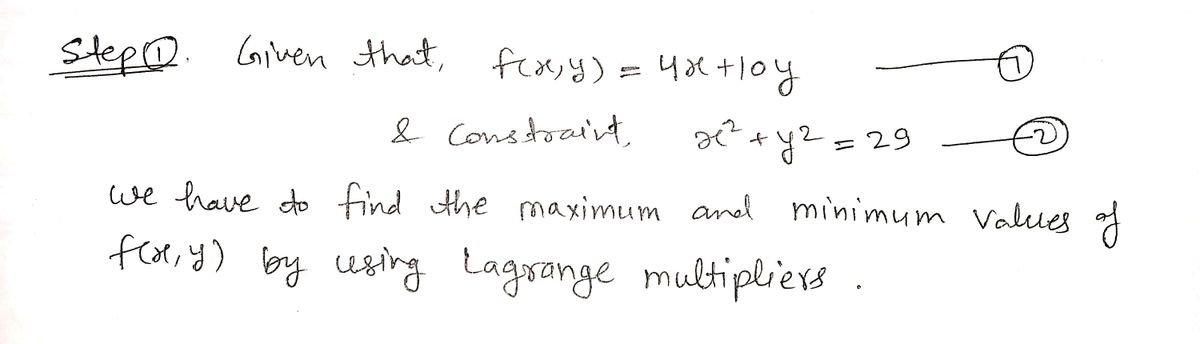 Step ①. Given that, f(x,y) = 4x+10y —— ①
& constraint, x²+y² = 29 —— ②
we have to find the maximum and minimum values of
f(x,y) by using Lagrange multipliers.